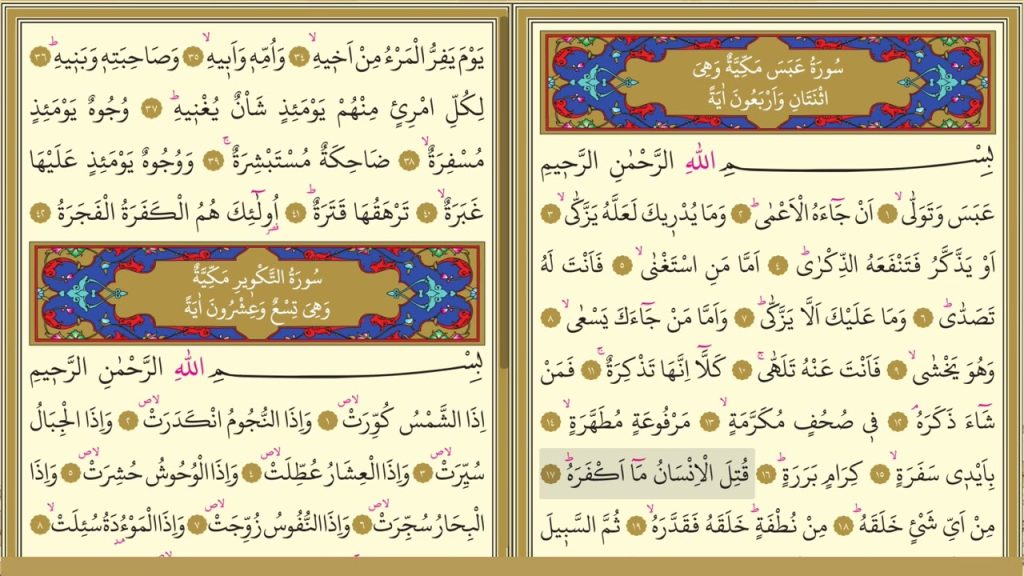 سُورَةُ عَبَسَ مَكِّيَّةٌ وَهِىَ
اثْنَتَانِ وَاَرْبَعُونَ اٰيَةً
بِسْمِ اللّٰهِ الرَّحْمٰنِ الرَّحٖيمِ
عَبَسَ وَتَوَلّٰىۙ ﴿١﴾ اَنْ جَٓاءَهُ الْاَعْمٰىؕ ﴿٢﴾ وَمَا يُدْرٖيكَ لَعَلَّهُ يَزَّكّٰىۙ ﴿٣﴾
اَوْ يَذَّكَّرُ فَتَنْفَعَهُ الذِّكْرٰىؕ ﴿٤﴾ اَمَّا مَنِ اسْتَغْنٰىۙ ﴿٥﴾ فَاَنْتَ لَهُ
تَصَدّٰىؕ ﴿٦﴾ وَمَا عَلَيْكَ اَلَّا يَزَّكّٰىؕ ﴿٧﴾ وَاَمَّا مَنْ جَٓاءَكَ يَسْعٰىۙ ﴿٨﴾
وَهُوَ يَخْشٰىۙ ﴿٩﴾ فَاَنْتَ عَنْهُ تَلَهّٰىۚ ﴿١٠﴾ كَلَّٓا اِنَّهَا تَذْكِرَةٌۚ ﴿١١﴾ فَمَنْ
شَٓاءَ ذَكَرَهُۘ ﴿١٢﴾ فٖى صُحُفٍ مُكَرَّمَةٍۙ ﴿١٣﴾ مَرْفُوعَةٍ مُطَهَّرَةٍۙ ﴿١٤﴾
بِاَيْدٖى سَفَرَةٍۙ ﴿١٥﴾ كِرَامٍ بَرَرَةٍؕ ﴿١٦﴾ قُتِلَ الْاِنْسَانُ مَٓا اَكْفَرَهُؕ ﴿١٧﴾
مِنْ اَىِّ شَىْءٍ خَلَقَهُؕ ﴿١٨﴾ مِنْ نُطْفَةٍؕ خَلَقَهُ فَقَدَّرَهُۙ ﴿١٩﴾ ثُمَّ السَّبٖيلَ
يَوْمَ يَفِرُّ الْمَرْءُ مِنْ اَخٖيهِۙ ﴿٣٤﴾ وَاُمِّهٖ وَاَبٖيهِۙ ﴿٣٥﴾ وَصَاحِبَتِهٖ وَبَنٖيهِؕ ﴿٣٦﴾
لِكُلِّ امْرِئٍ مِنْهُمْ يَوْمَئِذٍ شَاْنٌ يُغْنٖيهِؕ ﴿٣٧﴾ وُجُوهٌ يَوْمَئِذٍ
مُسْفِرَةٌۙ ﴿٣٨﴾ ضَاحِكَةٌ مُسْتَبْشِرَةٌۚ ﴿٣٩﴾ وَوُجُوهٌ يَوْمَئِذٍ عَلَيْهَا
غَبَرَةٌۙ ﴿٤٠﴾ تَرْهَقُهَا قَتَرَةٌؕ ﴿٤١﴾ اُولٰٓئِكَ هُمُ الْكَفَرَةُ الْفَجَرَةُ ﴿٤٢﴾
سُورَةُ التَّكْوٖيرِ مَكِّيَّةٌ
وَهِىَ تِسْعٌ وَعِشْرُونَ اٰيَةً
بِسْمِ اللّٰهِ الرَّحْمٰنِ الرَّحٖيمِ
اِذَا الشَّمْسُ كُوِّرَتْۙ ﴿١﴾ وَاِذَا النُّجُومُ انْكَدَرَتْۙ ﴿٢﴾ وَاِذَا الْجِبَالُ
سُيِّرَتْۙ ﴿٣﴾ وَاِذَا الْعِشَارُ عُطِّلَتْۙ ﴿٤﴾ وَاِذَا الْوُحُوشُ حُشِرَتْۙ ﴿٥﴾ وَاِذَا
الْبِحَارُ سُجِّرَتْۙ ﴿٦﴾ وَاِذَا النُّفُوسُ زُوِّجَتْۙ ﴿٧﴾ وَاِذَا الْمَوْءُ۫دَةُ سُئِلَتْۙ ﴿٨﴾